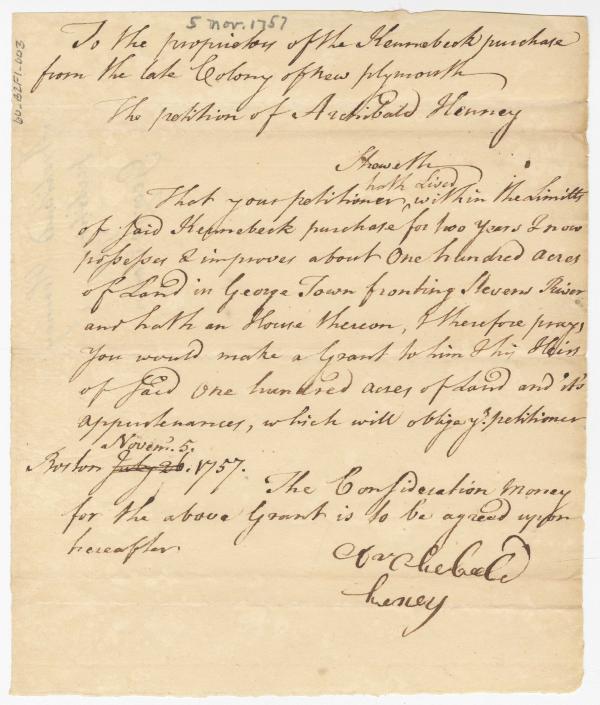 5 Nov. 1757
60-B2F1-003
To the proprietors of the Kennebeck purchase
from the late Colony of new plymouth
The petition of Archibald Henney
Sheweth
hath Lived
That your petitioner, within the Limitts
of said Kennebeck purchase for two Years & now
possesses & improves about One hundred acres
of Land in George Town fronting Stevens River
and hath an House thereon, & therefore prays
You would make a Grant to him & his Heirs
of said One hundred acres of Land and it's
appurtenances, which will oblige yr. petitioner
Novemr. 5.
Boston July 26. 1757.
The Consideration Money
for the above Grant is to be agreed upon
hereafter
Archebald
heney